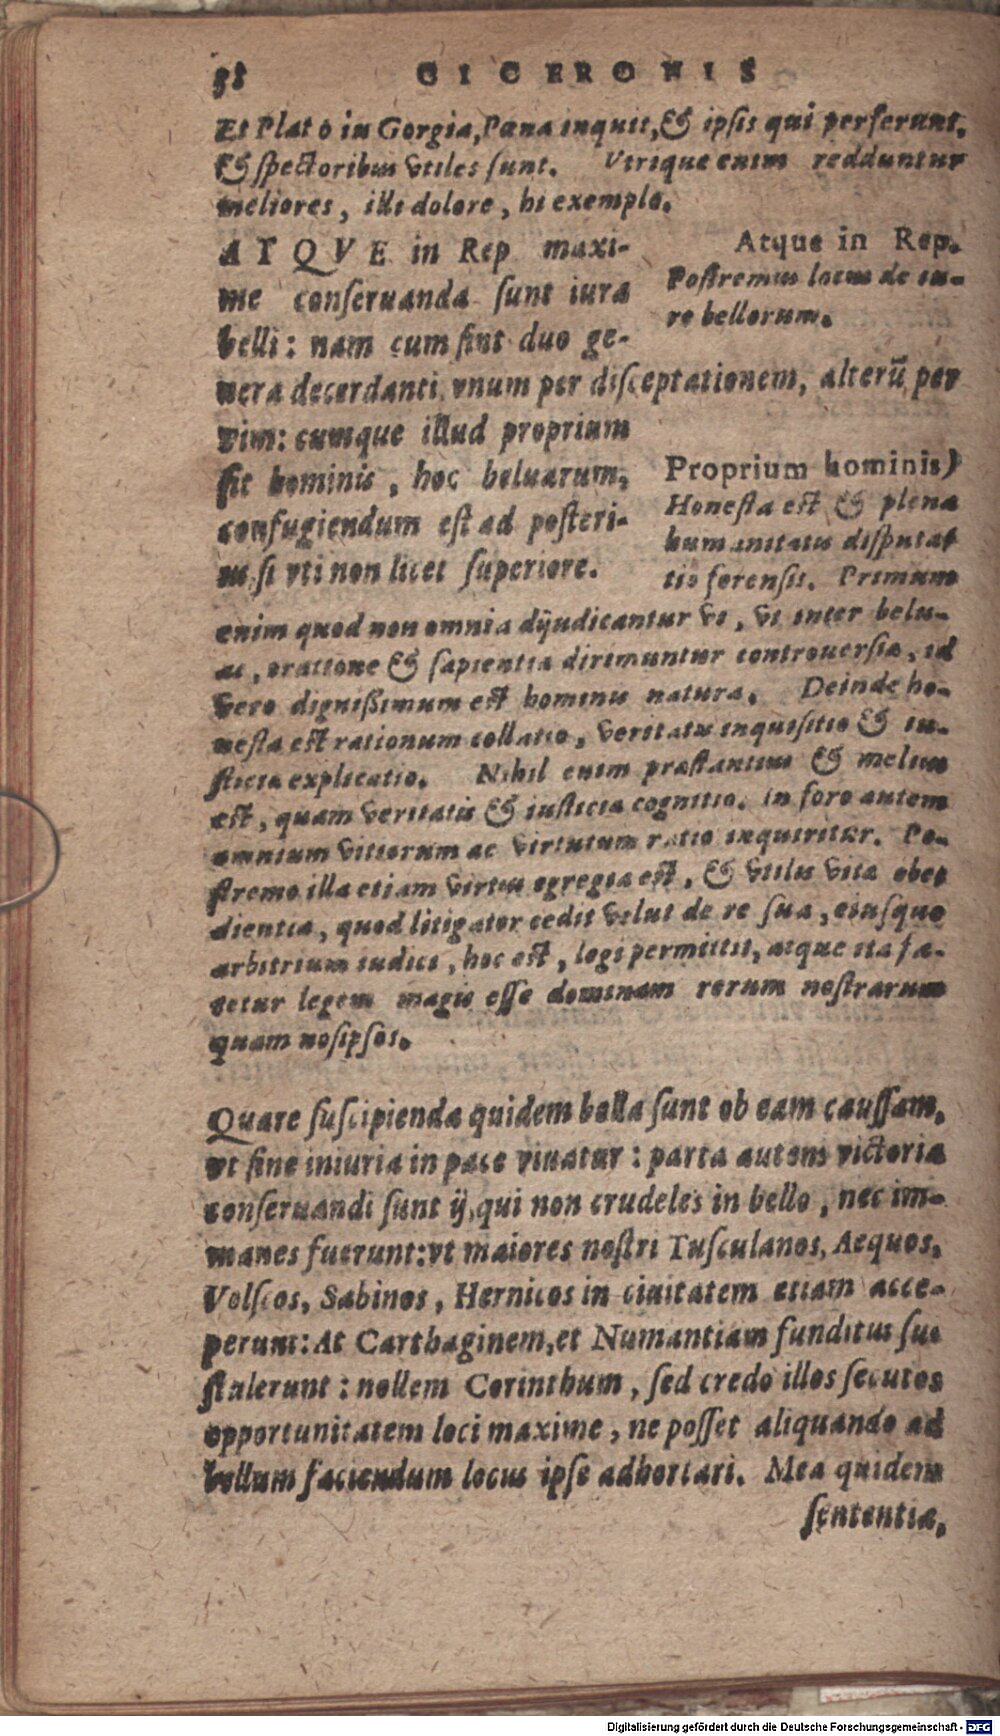 58 CICERONIS
Et Plato in Gorgia, Pœna inquit, & ipsis qui perferunt,
& spectoribus vtiles sunt. Vtrique enim redduntur
meliores, illi dolore, hi exemplo.
ATQVE in Rep maxi-
me conseruanda sunt iura
belli: nam cum sint duo ge-
nera decerdanti, vnum per disceptationem, alterũ per
vim: cumque illud proprium
sit hominis, hoc beluarum,
confugiendum est ad posteri-
us, si vti non licet superiore.
Atque in Rep.
Postremus locus de iu-
re bellorum.
Proprium hominis)
Honesta est & plena
humanitatis disputa
tio forensis. Primum
enim quod non omnia dijudicantur vi, vt inter belu-
as, oratione & sapientia dirimuntur controuersiæ, id
vero dignißimum est hominis natura. Deinde ho-
nesta est rationum collatio, veritatis inquisitio & iu-
sticiæ explicatio. Nihil enim præstantius & melius
est, quam veritatis & iusticiæ cognitio. in foro autem
omnium vitiorum ac virtutum ratio inquiritur. Po-
stremo illa etiam virtus egregia est, & vtilis vitæ obe
dientia, quod litigator cedit velut de re sua, eiusque
arbitrium iudici, hoc est, legi permittit, atque ita fa-
tetur legem magis esse dominam rerum nostrarum
quam nosipsos.
Quare suscipienda quidem bella sunt ob eam caussam,
vt sine iniuria in pace viuatur: parta autem victoria
conseruandi sunt ij, qui non crudeles in bello, nec im-
manes fuerunt: vt maiores nostri Tusculanos, Aequos,
Volscos, Sabinos, Hernicos in ciuitatem etiam acce-
perunt: At Carthaginem, et Numantiam funditus su
stulerunt: nollem Corinthum, sed credo illos secutos
opportunitatem loci maxime, ne posset aliquando ad
bellum faciendum locus ipse adhortari. Mea quidem
sententia,
Digitalisierung gefördert durch die Deutsche Forschungsgemeinschaft - DFG